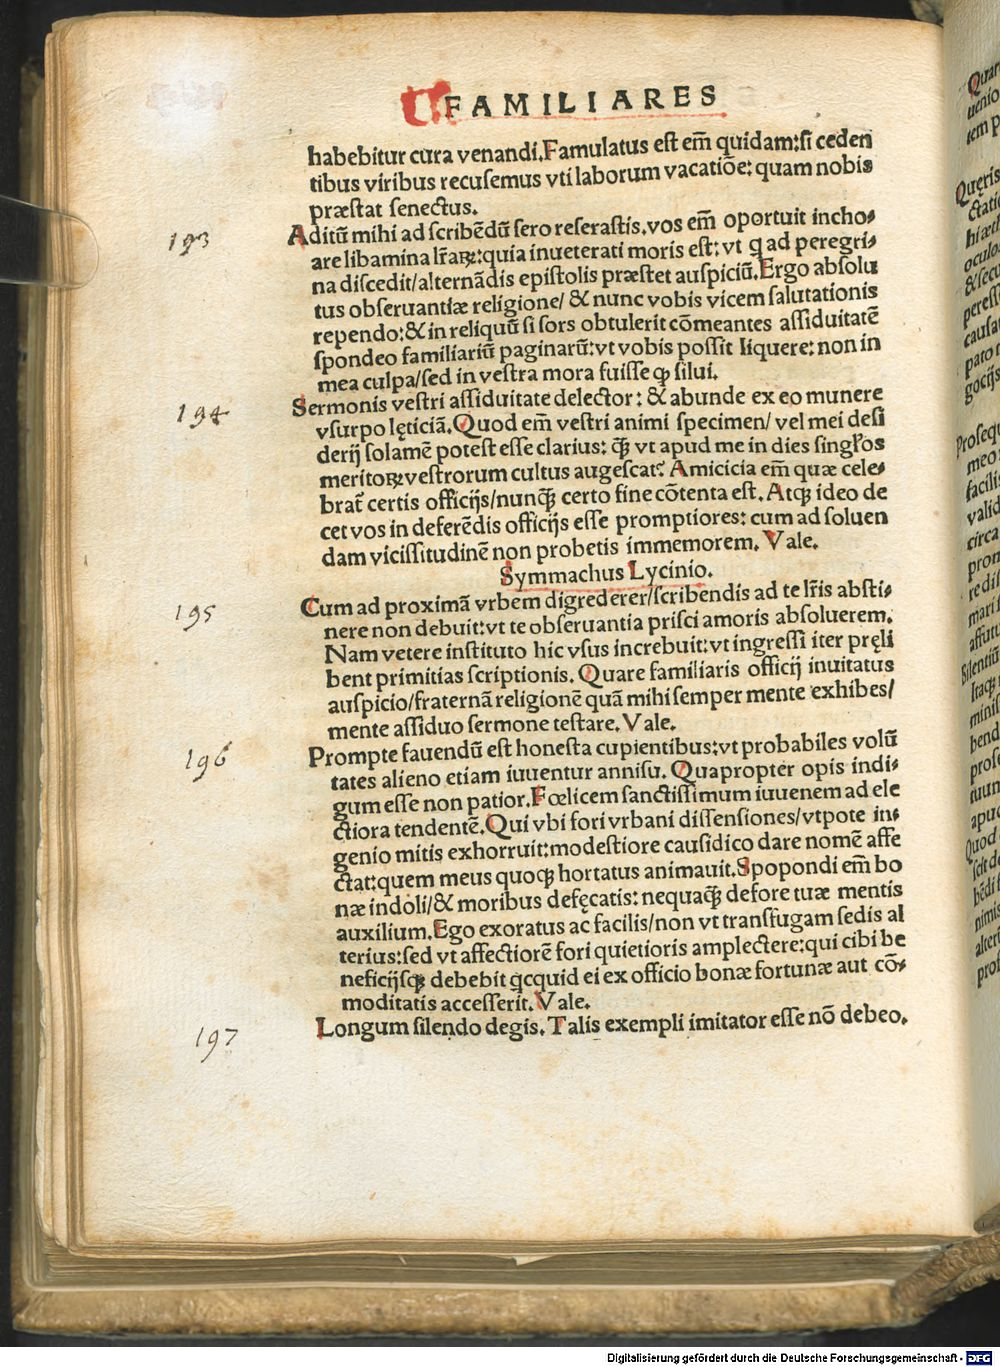 FAMILIARES
habebitur cura venandi. Famulatus est em̄ quidam: si ceden
tibus viribus recusemus vti laborum vacatiōe: quam nobis
præstat senectus.
193
Aditū mihi ad scribēdū sero reserastis. vos em̄ oportuit incho-
are libamina lr̄aꝝ: quia inueterati moris est: vt q ad peregri-
na discedit/alternādis epistolis præstet auspiciū. Ergo absolu
tus obseruantiæ religione/ & nunc vobis vicem salutationis
rependo: & in reliquū si sors obtulerit cōmeantes assiduitatē
spondeo familiariū paginarū: vt vobis possit liquere: non in
mea culpa/sed in vestra mora fuisse ꝙ silui.
194
Sermonis vestri assiduitate delector: & abunde ex eo munere
vsurpo lęticiā. Quod em̄ vestri animi specimen/ vel mei desi
derij solamē potest esse clarius: ꝙ̄ vt apud me in dies singl'os
meritoꝝ vestrorum cultus augescat? Amicicia em̄ quæ cele-
brat̄ certis officijs/nunꝙ̄ certo fine cōtenta est. Atꝙ ideo de
cet vos in deferēdis officijs esse promptiores: cum ad soluen
dam vicissitudinē non probetis immemorem. Vale.
Symmachus Lycinio.
195
Cum ad proximā vrbem digrederer/scribendis ad te lr̄is absti-
nere non debuit: vt te obseruantia prisci amoris absoluerem.
Nam vetere instituto hic vsus increbuit: vt ingressi iter pręli
bent primitias scriptionis. Quare familiaris officij inuitatus
auspicio/fraternā religionē quā mihi semper mente exhibes/
mente assiduo sermone testare. Vale.
196
Prompte fauendū est honesta cupientibus: vt probabiles volū
tates alieno etiam iuuentur annisu. Quapropter opis indi-
gum esse non patior. Fœlicem sanctissimum iuuenem ad ele
ctiora tendentē. Qui vbi fori vrbani dissensiones/vtpote in-
genio mitis exhorruit: modestiore causidico dare nomē affe
ctat: quem meus quoꝙ hortatus animauit. Spopondi em̄ bo
næ indoli/& moribus defęcatis: nequaꝙ̄ defore tuæ mentis
auxilium. Ego exoratus ac facilis/non vt transfugam sedis al
terius: sed vt affectiorē fori quietioris amplectere: qui cibi be
neficijsꝙ debebit qcquid ei ex officio bonæ fortunæ aut cō-
moditatis accesserit. Vale.
197
Longum silendo degis. Talis exempli imitator esse nō debeo.
Digitalisierung gefördert durch die Deutsche Forschungsgemeinschaft - DFG